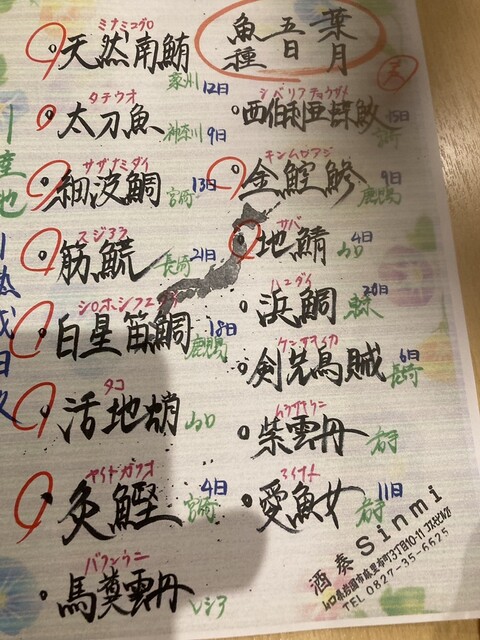 葉月
五日
魚種
ミナミマグロ
天然南鮪
豪州
12日
タチウオ
太刀魚
神奈川
9日
サザナミダイ
細波鯛
宮崎
13日
スジアラ
筋鯍
長崎
21日
シロホシフエダイ
白星笛鯛
鹿児島
18日
タコ
活地蛸
山口
ヤイトガツオ
灸鰹
宮崎
4日
バフンウニ
馬糞雲丹
ロシア
シベリアチョウザメ
西伯利亜蝶鮫
宮崎
15日
キンムロアジ
金鰘鯵
鹿児島
9日
サバ
地鯖
山口
4日
ハマダイ
浜鯛
熊本
20日
ケンサキイカ
剣先烏賊
長崎
6日
ムラサキウニ
紫雲丹
岩手
アイナメ
愛魚女
岩手
11日
酒奏 Sinmi
山口県岩国市麻里布町3丁目10-11
TEL 0827-35-6625